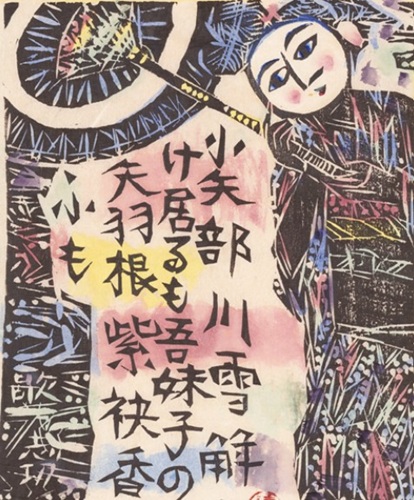 小矢部川雪解
け居るも吾妹子の
夫羽根紫袂香
小も
歌志功